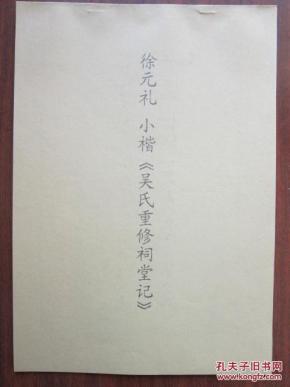 徐元礼 小楷《吴氏重修祠堂记》
孔夫子旧书网